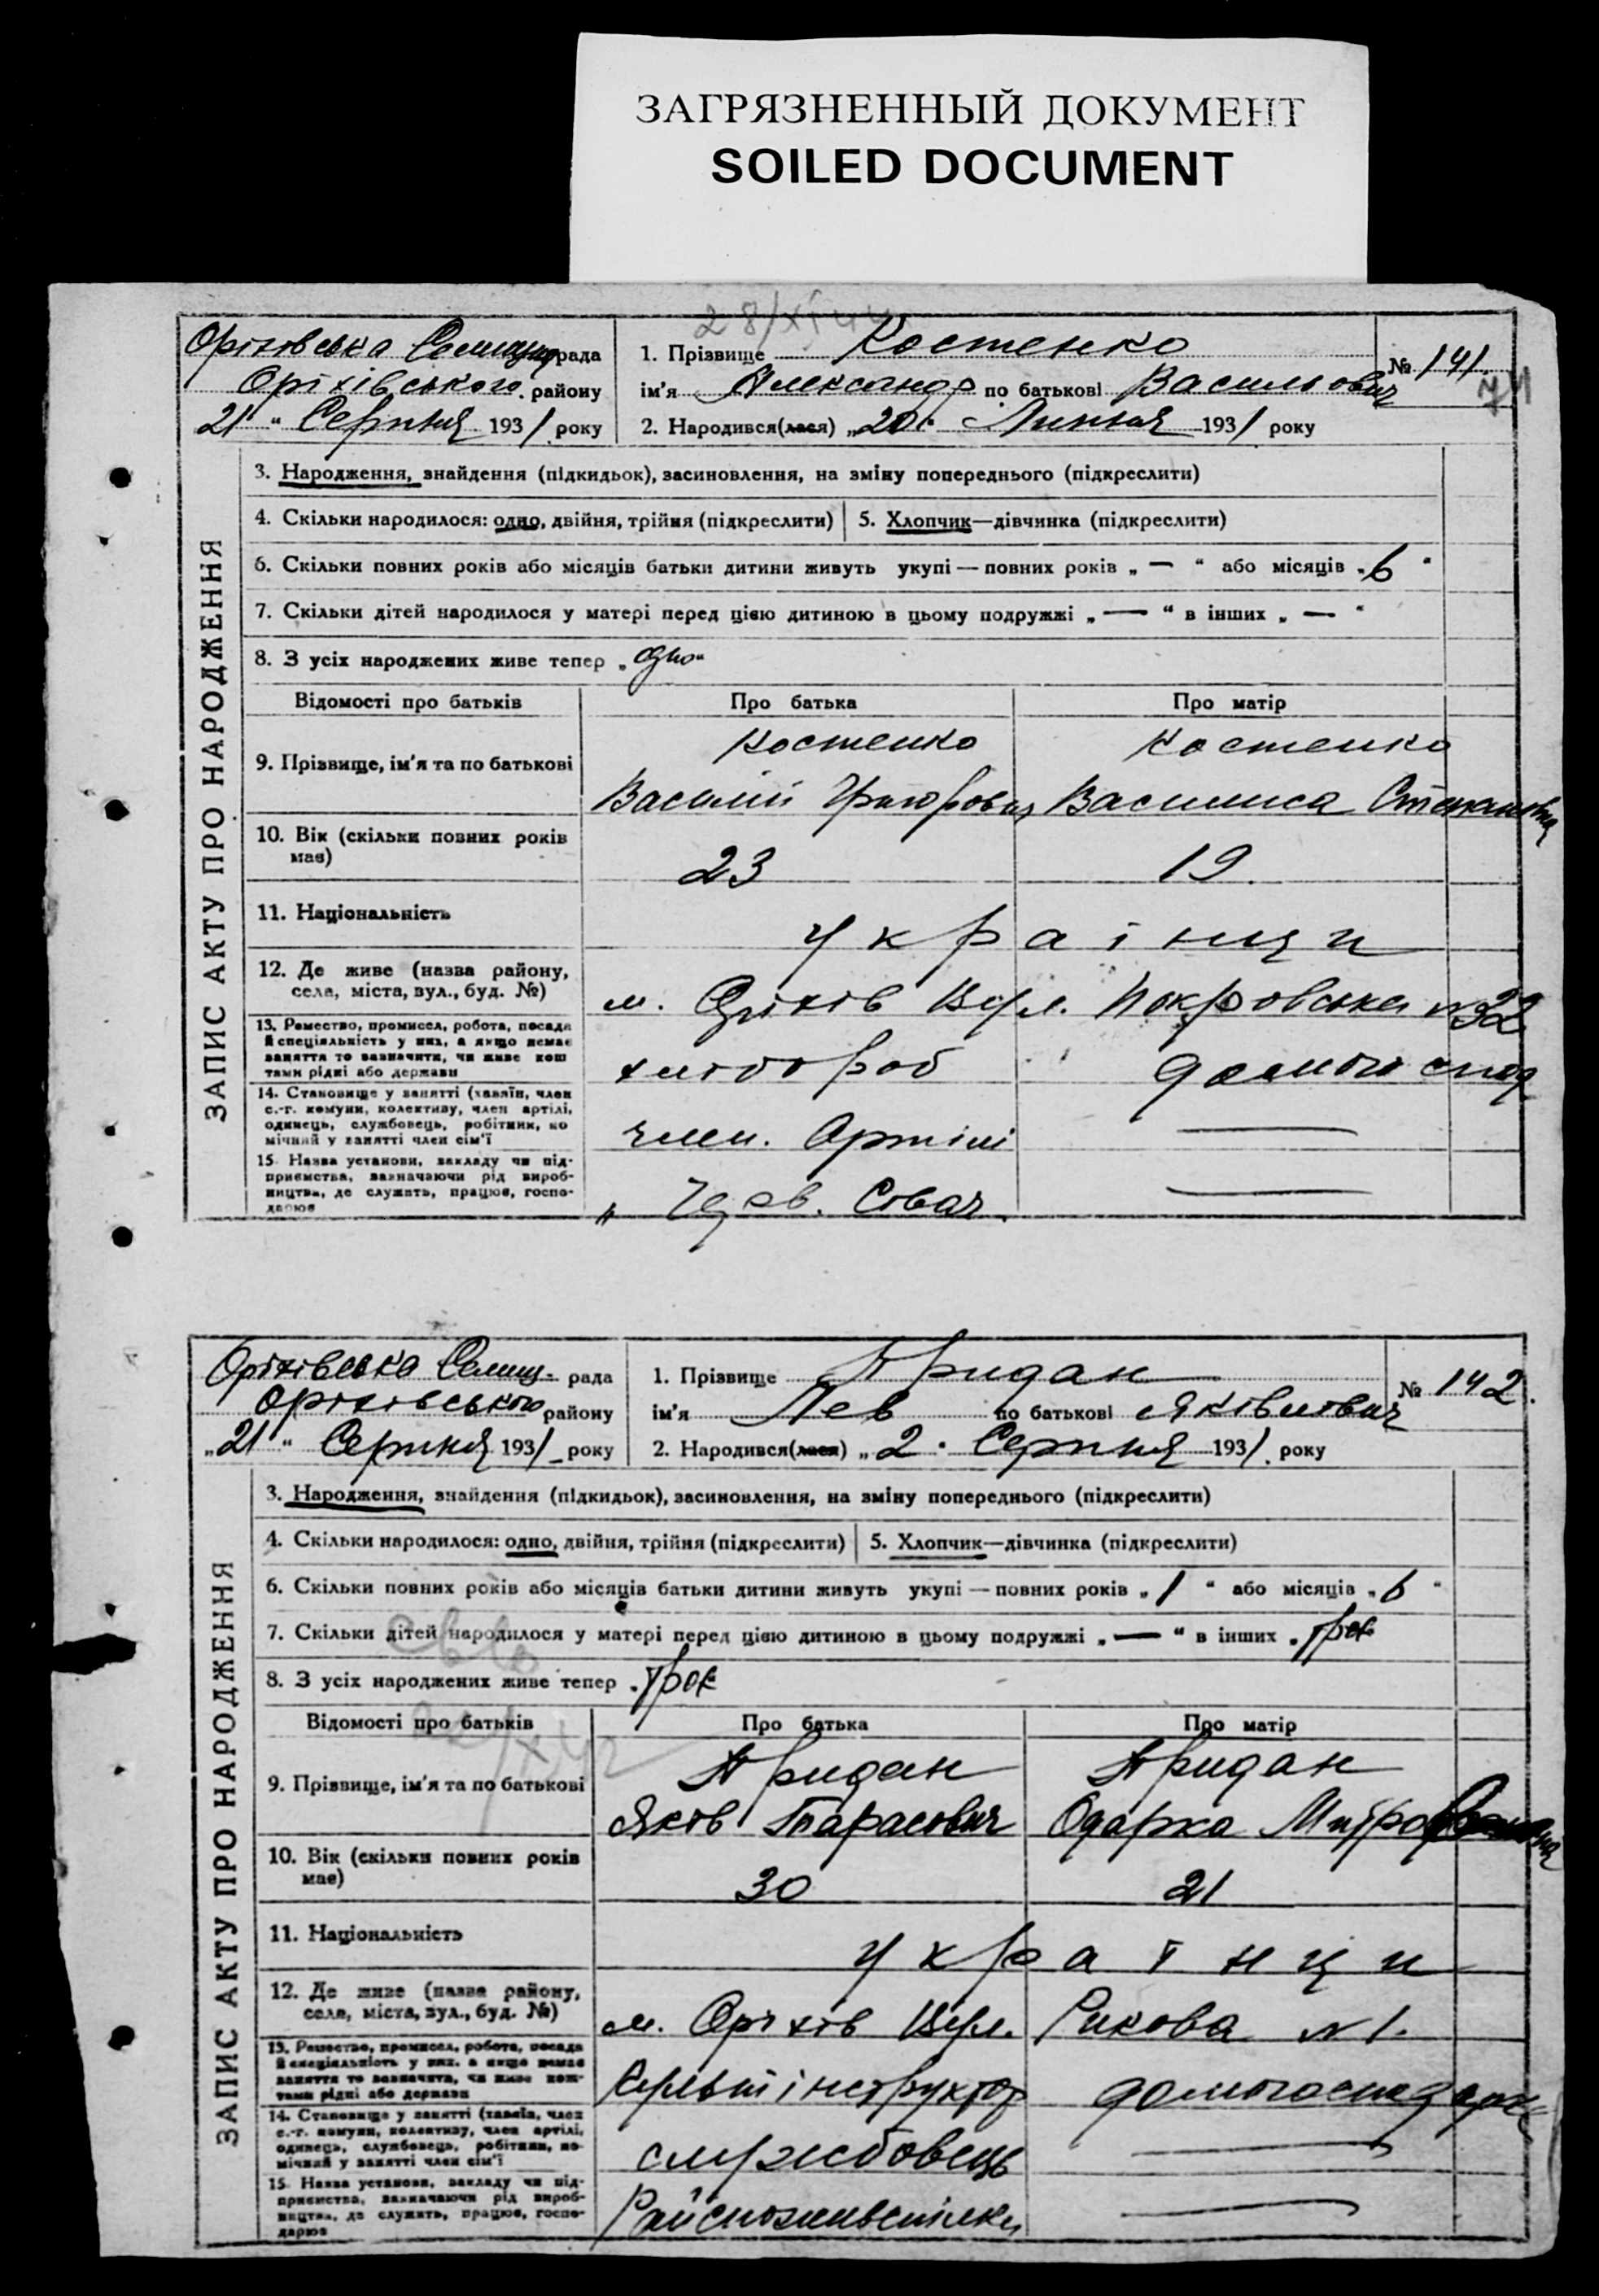 ЗАГРЯЗНЕННЫЙ ДОКУМЕНТ
SOILED DOCUMENT
28/XI 44
Оріхівська Селищна рада
Оріхівського району
21 " Серпня 1931 року
1. Прізвище Костенко
ім'я Александр по батькові Васильович
2. Народився(лася) „20" Липня 1931 року
№ 141.
71
ЗАПИС АКТУ ПРО НАРОДЖЕННЯ
3. Народження, знайдення (підкидьок), засиновлення, на зміну попереднього (підкреслити)
4. Скільки народилося: одно, двійня, трійня (підкреслити) 5. Хлопчик—дівчинка (підкреслити)
6. Скільки повних років або місяців батьки дитини живуть укупі — повних років „ — " або місяців „6"
7. Скільки дітей народилося у матері перед цією дитиною в цьому подружжі „ — " в інших „ — "
8. З усіх народжених живе тепер „одно"
Відомості про батьків Про батька Про матір
9. Прізвище, ім'я та по батькові
Костенко Костенко
Василій Григорович Василиса Степановна
10. Вік (скільки повних років має)
23 19.
11. Національність
українци
12. Де живе (назва району, села, міста, вул., буд. №)
м. Оріхів Вул. Покровська №32
13. Ремество, промисел, робота, посада й спеціяльність у них, а якщо немає заняття то зазначити, чи живе кош тами рідні або держави
хлібороб домогоспод
14. Становище у занятті (хазяїн, член с.-г. комуни, колективу, член артілі, одинець, службовець, робітник, по мічний у занятті член сім'ї
член. Артілі —
15. Назва установи, закладу чи під-приємства, зазначаючи рід вироб-ництва, де служить, працює, госпо-дарює
„ Черв. Сівач. —
Оріхівська Селищ. рада
Оріхівського району
„21" Серпня 1931 року
1. Прізвище Придан
ім'я Лев по батькові Яківлович
2. Народився(лася) „2" Серпня 1931 року
№ 142.
ЗАПИС АКТУ ПРО НАРОДЖЕННЯ
3. Народження, знайдення (підкидьок), засиновлення, на зміну попереднього (підкреслити)
4. Скільки народилося: одно, двійня, трійня (підкреслити) 5. Хлопчик—дівчинка (підкреслити)
6. Скільки повних років або місяців батьки дитини живуть укупі — повних років „1" або місяців „6"
7. Скільки дітей народилося у матері перед цією дитиною в цьому подружжі „ — " в інших „
8. З усіх народжених живе тепер „
Відомості про батьків Про батька Про матір
9. Прізвище, ім'я та по батькові
Придан Придан
Яків Тарасович Одарка
10. Вік (скільки повних років має)
30 21
11. Національність
українци
12. Де живе (назва району, села, міста, вул., буд. №)
м. Оріхів Вул. Рикова №1.
13. Ремество, промисел, робота, посада й спеціяльність у них, а якщо немає заняття то зазначити, чи живе кош-тами рідні або держави
Культінструктор домогосподарка
14. Становище у занятті (хазяїн, член с.-г. комуни, колективу, член артілі, одинець, службовець, робітник, по-мічний у занятті член сім'ї
службовець —
15. Назва установи, закладу чи під-приємства, зазначаючи рід вироб-ництва, де служить, працює, госпо-дарює
Райспоживспілки —